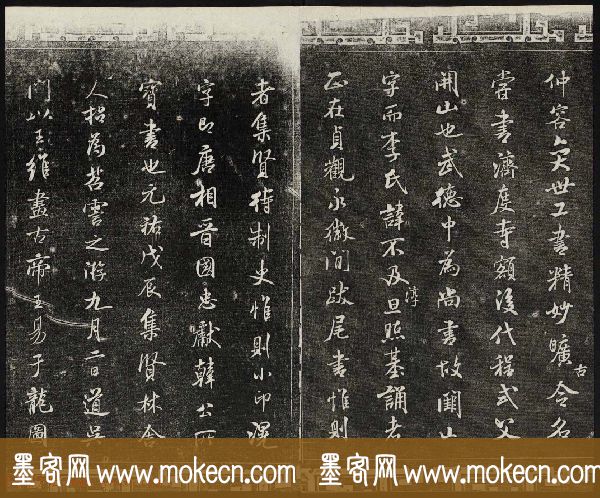 仲容奕世工書精妙曠古令名
嘗書濟度寺額後代程式父
開山也武德中為尚書故闕山
字而李氏諱不及旦照基淳誦者
正在貞觀永徽間跋尾書惟則
者集賢待制史惟則小印滉
字即唐相晉國忠獻韓公所
寶書也元祐戊辰集賢林舍
人招為苕霅之游九月二日道吳
門以王維畫古帝王易于龍圖
墨客网 www.mokecn.com 墨客网 www.mokecn.com